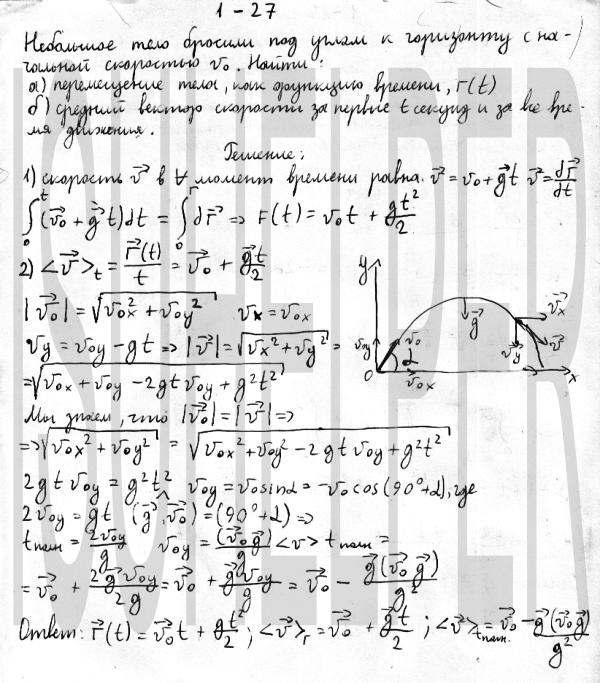 1-27
Небольшое тело бросили под углом к горизонту с на-
чальной скоростью v₀. Найти:
а) перемещение тела, как функцию времени, r(t)
б) средний вектор скорости за первые t секунд и за все вре-
мя движения.
Решение:
1) скорость v⃗ в ∀ момент времени равна. v⃗ = v₀ + g⃗t v⃗ = dr⃗/dt
∫₀ᵗ(v⃗₀ + g⃗t)dt = ∫₀ʳdr⃗ => r(t) = v₀t + gt²/2
2) <v⃗>ₜ = r⃗(t)/t = v⃗₀ + g⃗t/2
|v⃗₀| = √(v₀ₓ² + v₀y²) vₓ = v₀ₓ
vy = v₀y - gt => |v⃗| = √(vₓ² + vy²) =
= √(v₀ₓ + v₀y - 2gtv₀y + g²t²)
Мы знаем, что |v⃗₀| = |v⃗| =>
=> √(v₀ₓ² + v₀y²) = √(v₀ₓ² + v₀y² - 2gtv₀y + g²t²)
2gtv₀y = g²t² v₀y = v₀sinα = -v₀cos(90°+α), где
2v₀y = gt (g⃗^v⃗₀) = (90°+α) =>
tполн = 2v₀y/g v₀y = (v⃗₀g⃗)/g <v> tполн =
= v⃗₀ + 2g⃗v₀y/2g = v⃗₀ + g⃗v₀y/g = v⃗₀ - g⃗(v⃗₀g⃗)/g²
Ответ: r⃗(t) = v⃗₀t + gt²/2; <v⃗>ₜ = v⃗₀ + g⃗t/2; <v⃗>tполн. = v⃗₀ - g⃗(v⃗₀g⃗)/g²
y
v₀y
v₀
α
O
v₀ₓ
g⃗
v⃗ₓ
v⃗y
v⃗
x